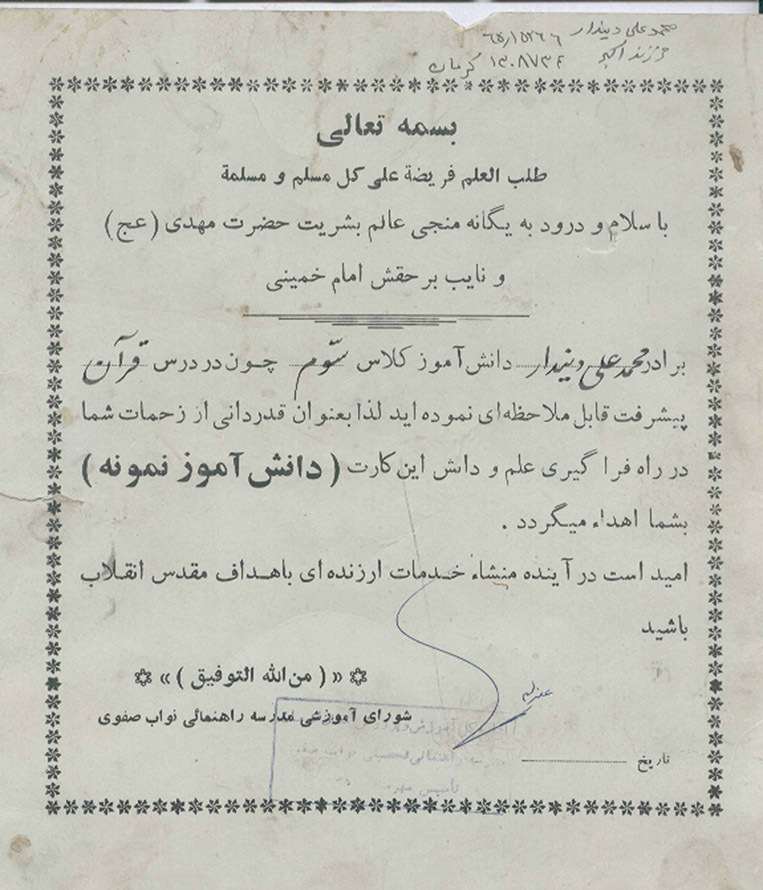 محمد علی دیندار
فرزند اکبر
کرمان
بسمه تعالی
طلب العلم فریضة علی کل مسلم و مسلمة
با سلام و درود به یگانه منجی عالم بشریت حضرت مهدی (عج)
و نایب بر حقش امام خمینی
برادر محمد علی دیندار دانش آموز کلاس سوّم چون در درس قرآن
پیشرفت قابل ملاحظه‌ای نموده اید لذا بعنوان قدردانی از زحمات شما
در راه فرا گیری علم و دانش این کارت (دانش آموز نمونه)
بشما اهداء میگردد .
امید است در آینده منشاء خدمات ارزنده ای باهداف مقدس انقلاب
باشید
«(من الله التوفیق)»
شورای آموزشی مدرسه راهنمائی نواب صفوی
تاریخ